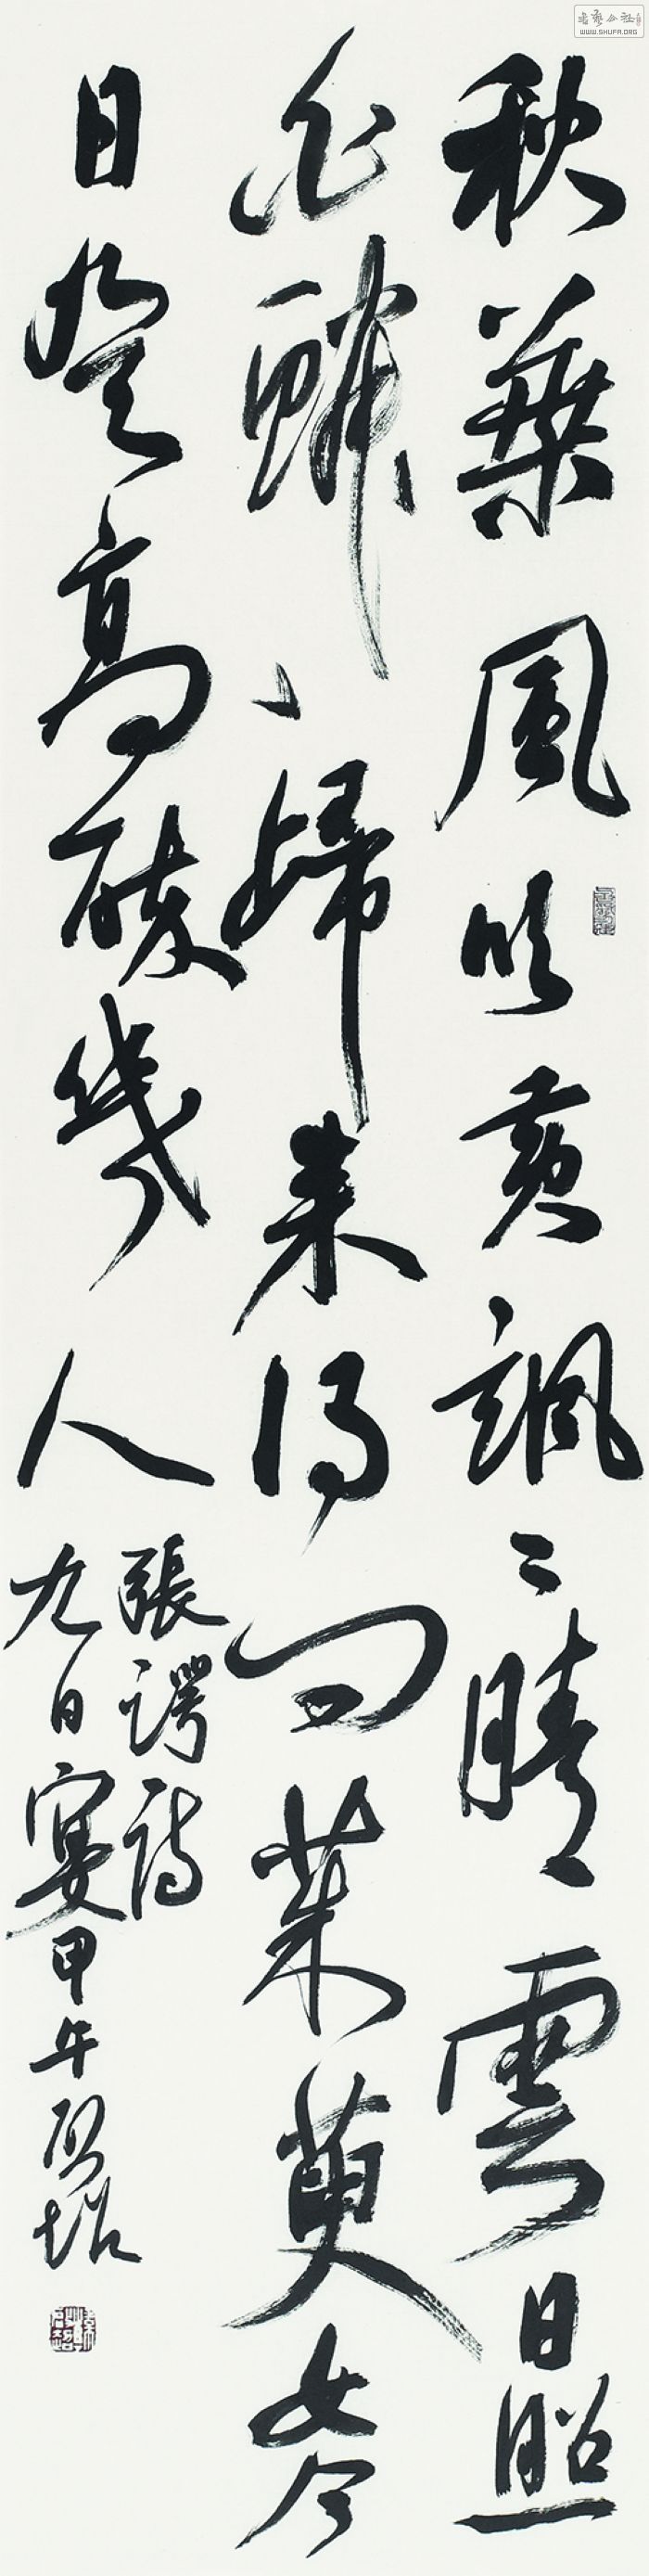 秋葉風吹黄颯々晴雲日照
白鱗々歸来得問茱萸女今
日登高醉幾人
張諤詩
九日宴甲午
書藝公社
WWW.SHUFA.ORG